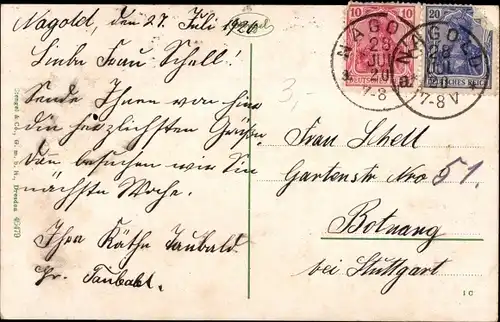 Nagold, den 27. Juli 1920
Liebe Frau Schell!
Sende Ihnen von hier
die herzlichsten Grüße.
Dan besuchen wir Sie
nächste Woche.
Ihre Käthe Taubald
Fr. Taubald.
Frau Schell
Gartenstr Nro 51.
Botnang
bei Stuttgart
3,-
10 10
20
DEUTSCHES REICH
NAGOLD
28
JUL
20
7-8 V
NAGOLD
28
JUL
20
7-8 V
Stengel & Co., G. m. b. H., Dresden 45479
1 C